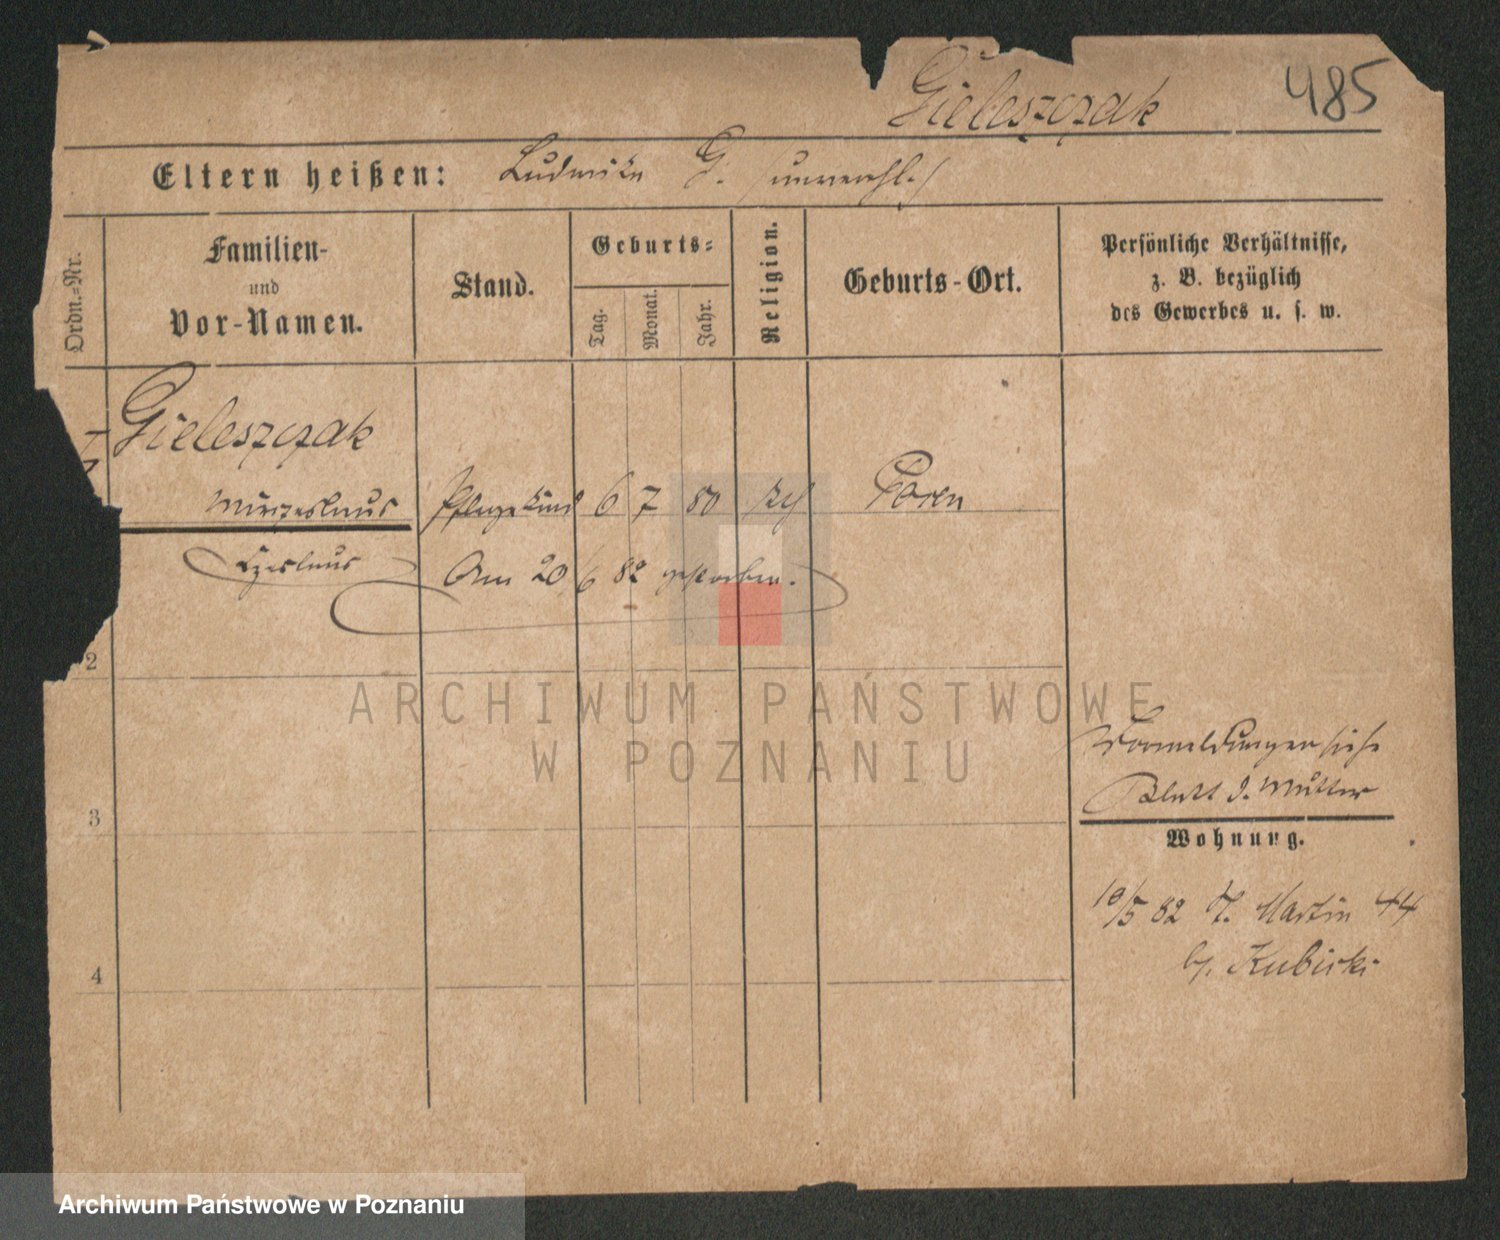 Gieleszczak
485
Eltern heißen: Ludwika G. /unverehl./
Ordn.-Nr.
Familien-
und
Vor-Namen.
Stand.
Geburts-
Tag.
Monat.
Jahr.
Religion.
Geburts-Ort.
Persönliche Verhältnisse,
z. B. bezüglich
des Gewerbes u. s. w.
Gieleszczak
Pflegekind 6 7 80 Posen
Czeslaus Am 20/6 82 gestorben.
2
3
4
ARCHIWUM PAŃSTWOWE
W POZNANIU
Vormeldungen siehe
Blatt d. Mutter
Wohnung.
10/5 82 St. Martin 44
b/. Kubicki
Archiwum Państwowe w Poznaniu